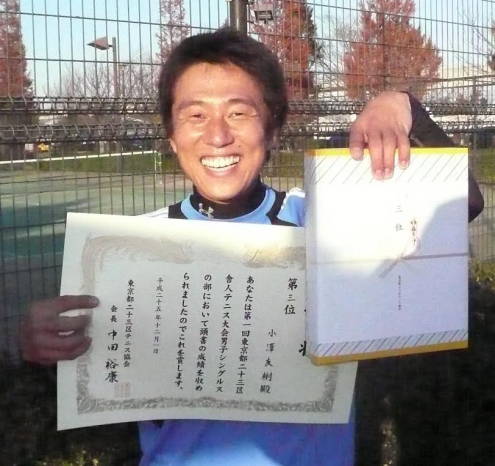 第三位
小澤友樹殿
あなたは第一回東京都二十三区
舎人テニス大会男子シングルス
の部において頭書の成績を収め
られましたのでこれを賞します。
平成二十五年十二月一日
東京都二十三区テニス協会
会長 中田裕康
三位